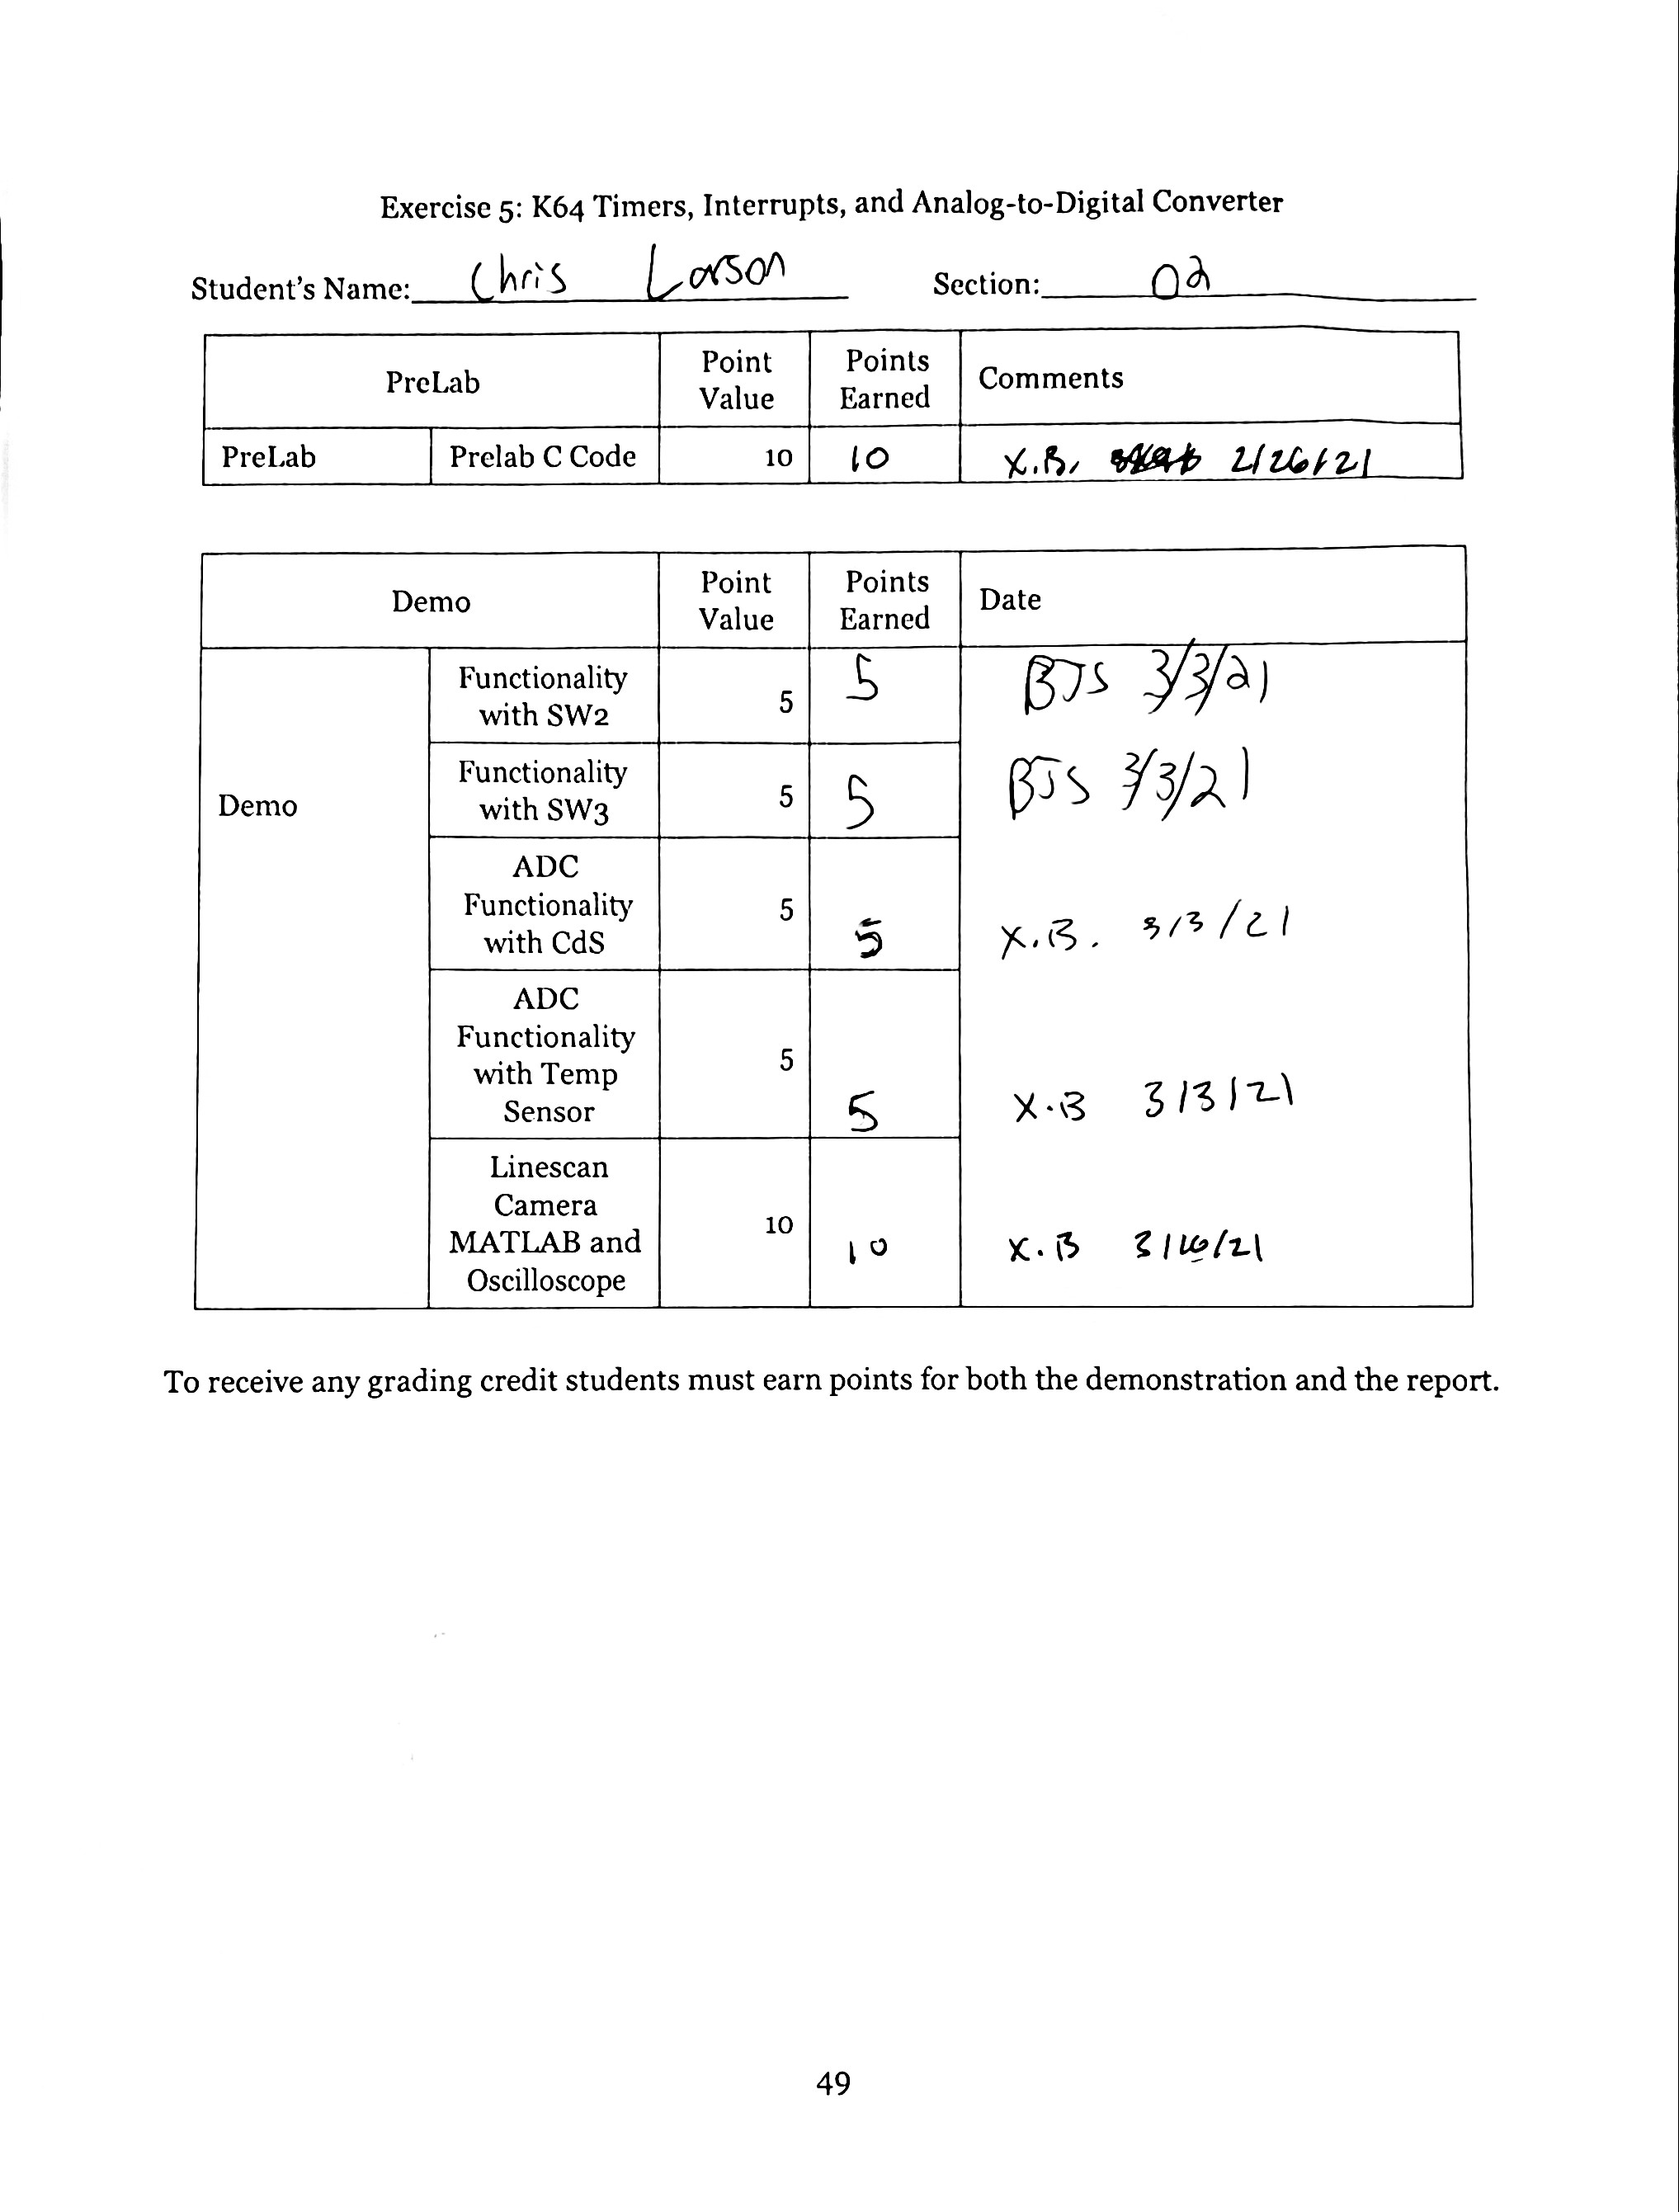 Exercise 5: K64 Timers, Interrupts, and Analog-to-Digital Converter
Student's Name: Chris Larson Section: 02
PreLab Point Value Points Earned Comments
PreLab Prelab C Code 10 10 X.B. 2/26/21
Demo Point Value Points Earned Date
Demo
Functionality with SW2 5 5 BJS 3/3/21
Functionality with SW3 5 5 BJS 3/3/21
ADC Functionality with CdS 5 5 X.B. 3/3/21
ADC Functionality with Temp Sensor 5 5 X.B 3/3/21
Linescan Camera MATLAB and Oscilloscope 10 10 X.B
To receive any grading credit students must earn points for both the demonstration and the report.
49